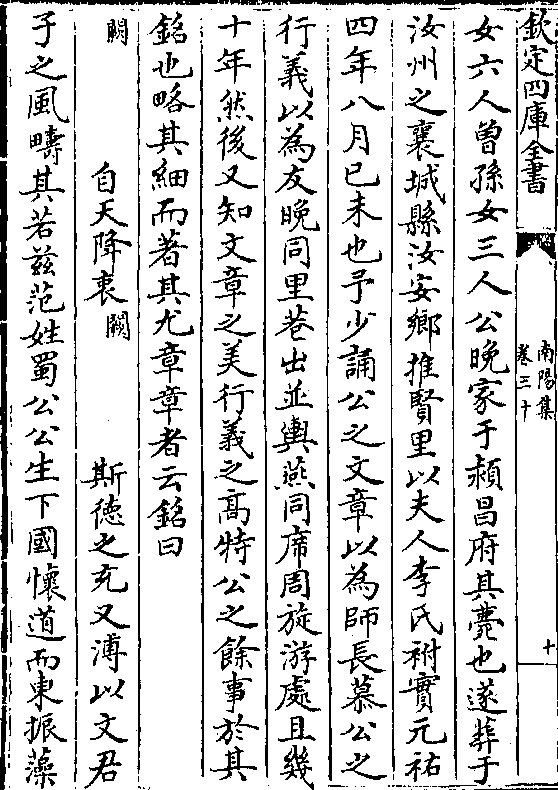 欽定四庫全書
南陽集
卷三十
十
女六人曾孫女三人公晚家于潁昌府其薨也遂葬于
汝州之襄城縣汝安鄉推賢里以夫人李氏祔實元祐
四年八月己未也予少誦公之文章以為師長慕公之
行義以為友晚同里巷出並輿燕同席周旋游處且幾
十年然後又知文章之美行義之高特公之餘事於其
銘也略其細而著其尤章章者云銘曰
闕　　自天降衷闕　　斯德之充又溥以文君
子之風疇其若兹范姓蜀公公生下國懷道而東振藻